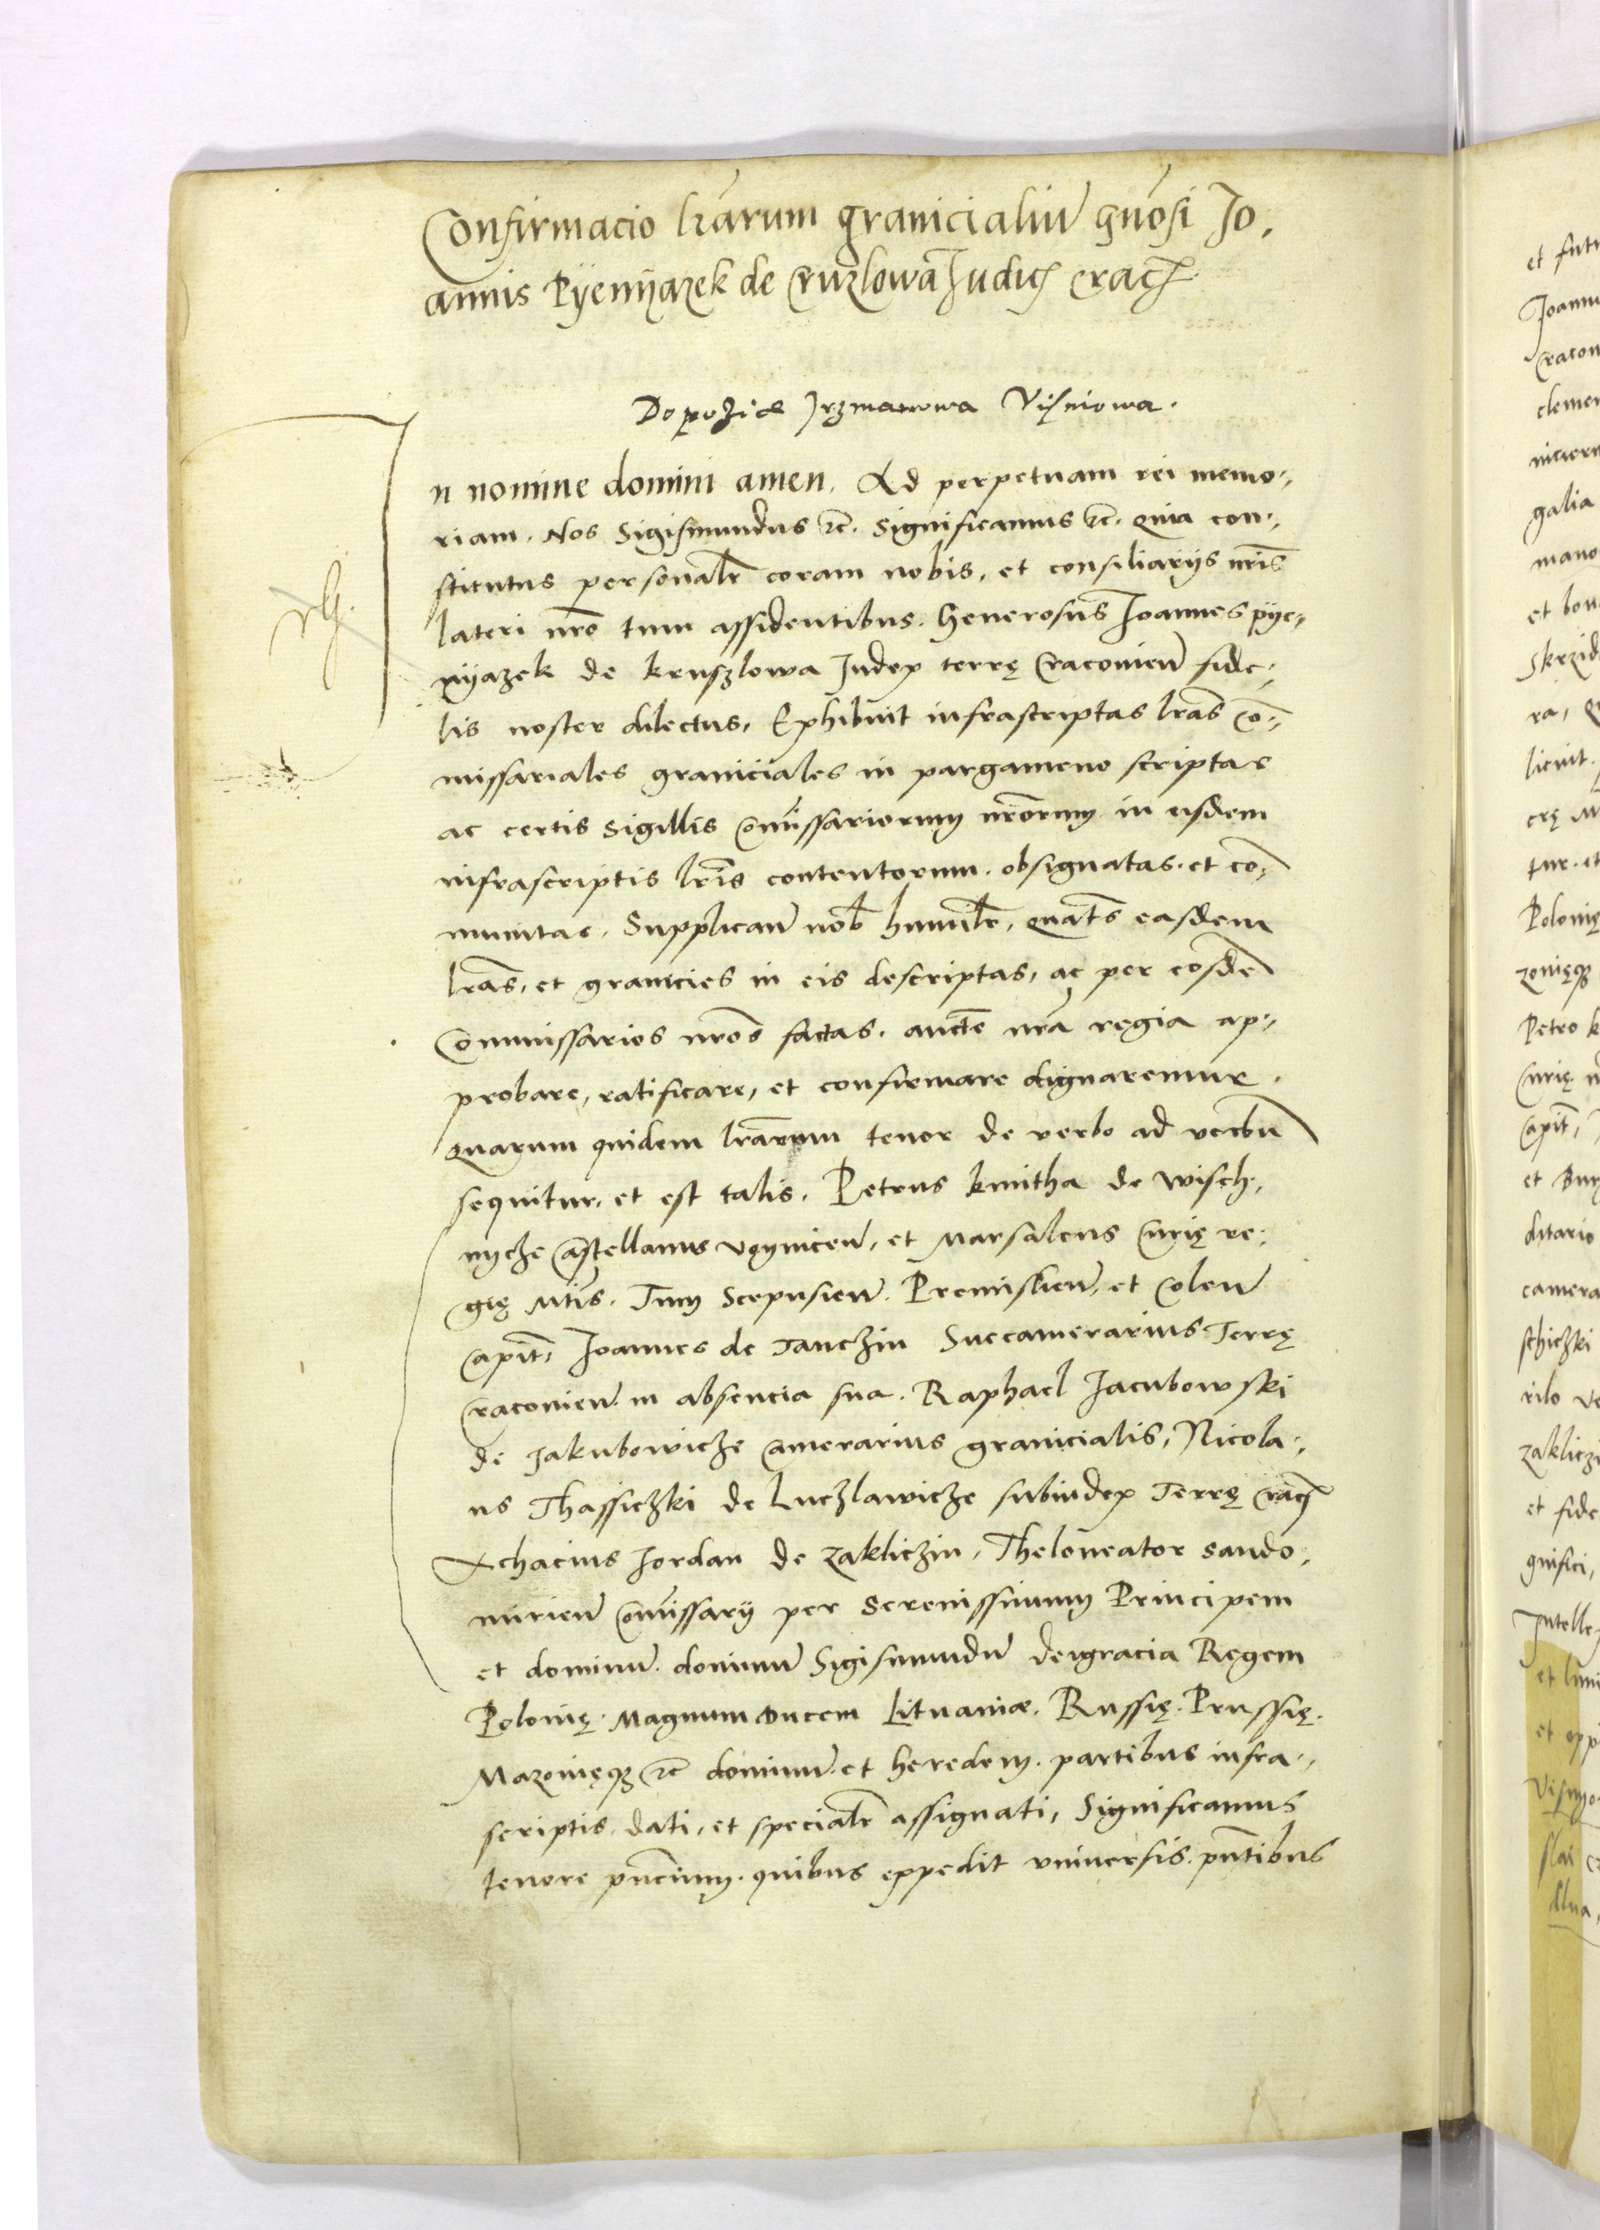 Confirmacio lrarum granicialiu gnosi Jo,
annis Pÿenÿazek de Cruzlowa Judic Crac
Dopozicz Jrzmanowa Visniowa.
n nomine domini amen. Ad perpetuam rei memo,
riam. Nos Sigismundus etc. Significamus etc. Quia con,
stitutus personalr coram nobis, et consiliarÿs nris
lateri nro tum assidentibus. Generosus Joannes pÿe,
nÿazek de kruszlowa Judex terrę Cracovien fide,
lis noster dilectus, Exhibuit infrascriptas lras co,
missariales graniciales in pargameno scriptas
ac certis Sigillis Comissariorum nrorum in eisdem
infrascriptis lris contentorum. obsignatas. et co,
munitas. Supplican nob humilr, quats easdem
lras, et granicies in eis descriptas, ac per eosde
Commissarios nros factas. aucte nra regia ap,
probare, ratificare, et confirmare dignaremur.
Quarum quidem lrarum tenor de verbo ad verbu
sequitur. et est talis. Petrus kmitha de Wisch,
nycze Castellanus voynicen, et Marsalcus Curię re,
gię Mtis. Tum Scepusien. Premislien, et Colen
Capit, Joannes de Tanczin Succamerarius Terrę
Cracovien in absencia sua. Raphael Jacubowski
de Jakubowicze Camerarius granicialis, Nicola,
us Thassiczki de Luczlawicze subiudex Terrę Crac
Achacius Jordan de Zakliczin, Theloneator Sando,
mirien Comissarÿ per Serenissimum Principem
et dominu. dominu Sigismundu deigracia Regem
Polonię. Magnum Ducem Lituaniæ. Russię. Prussię.
Mazovięqz etc dominu. et heredem. partibus infra,
scriptis. dati, et specialr assignati, Significamus
tenore pncium. quibus expedit universis. pntibus
et futu
Joannu
Cracov
clemen
galia
mano
et bon
Skrzid
ra, Q
licuit.
tur. et
Polonię
zovięqz
Petro k
Curię n
Capit,
et Bur
ditario
camera
schiczki
rilo ve
zakliczi
et fide
gnifici,
Intelle
et limi
et opp
Visnyo